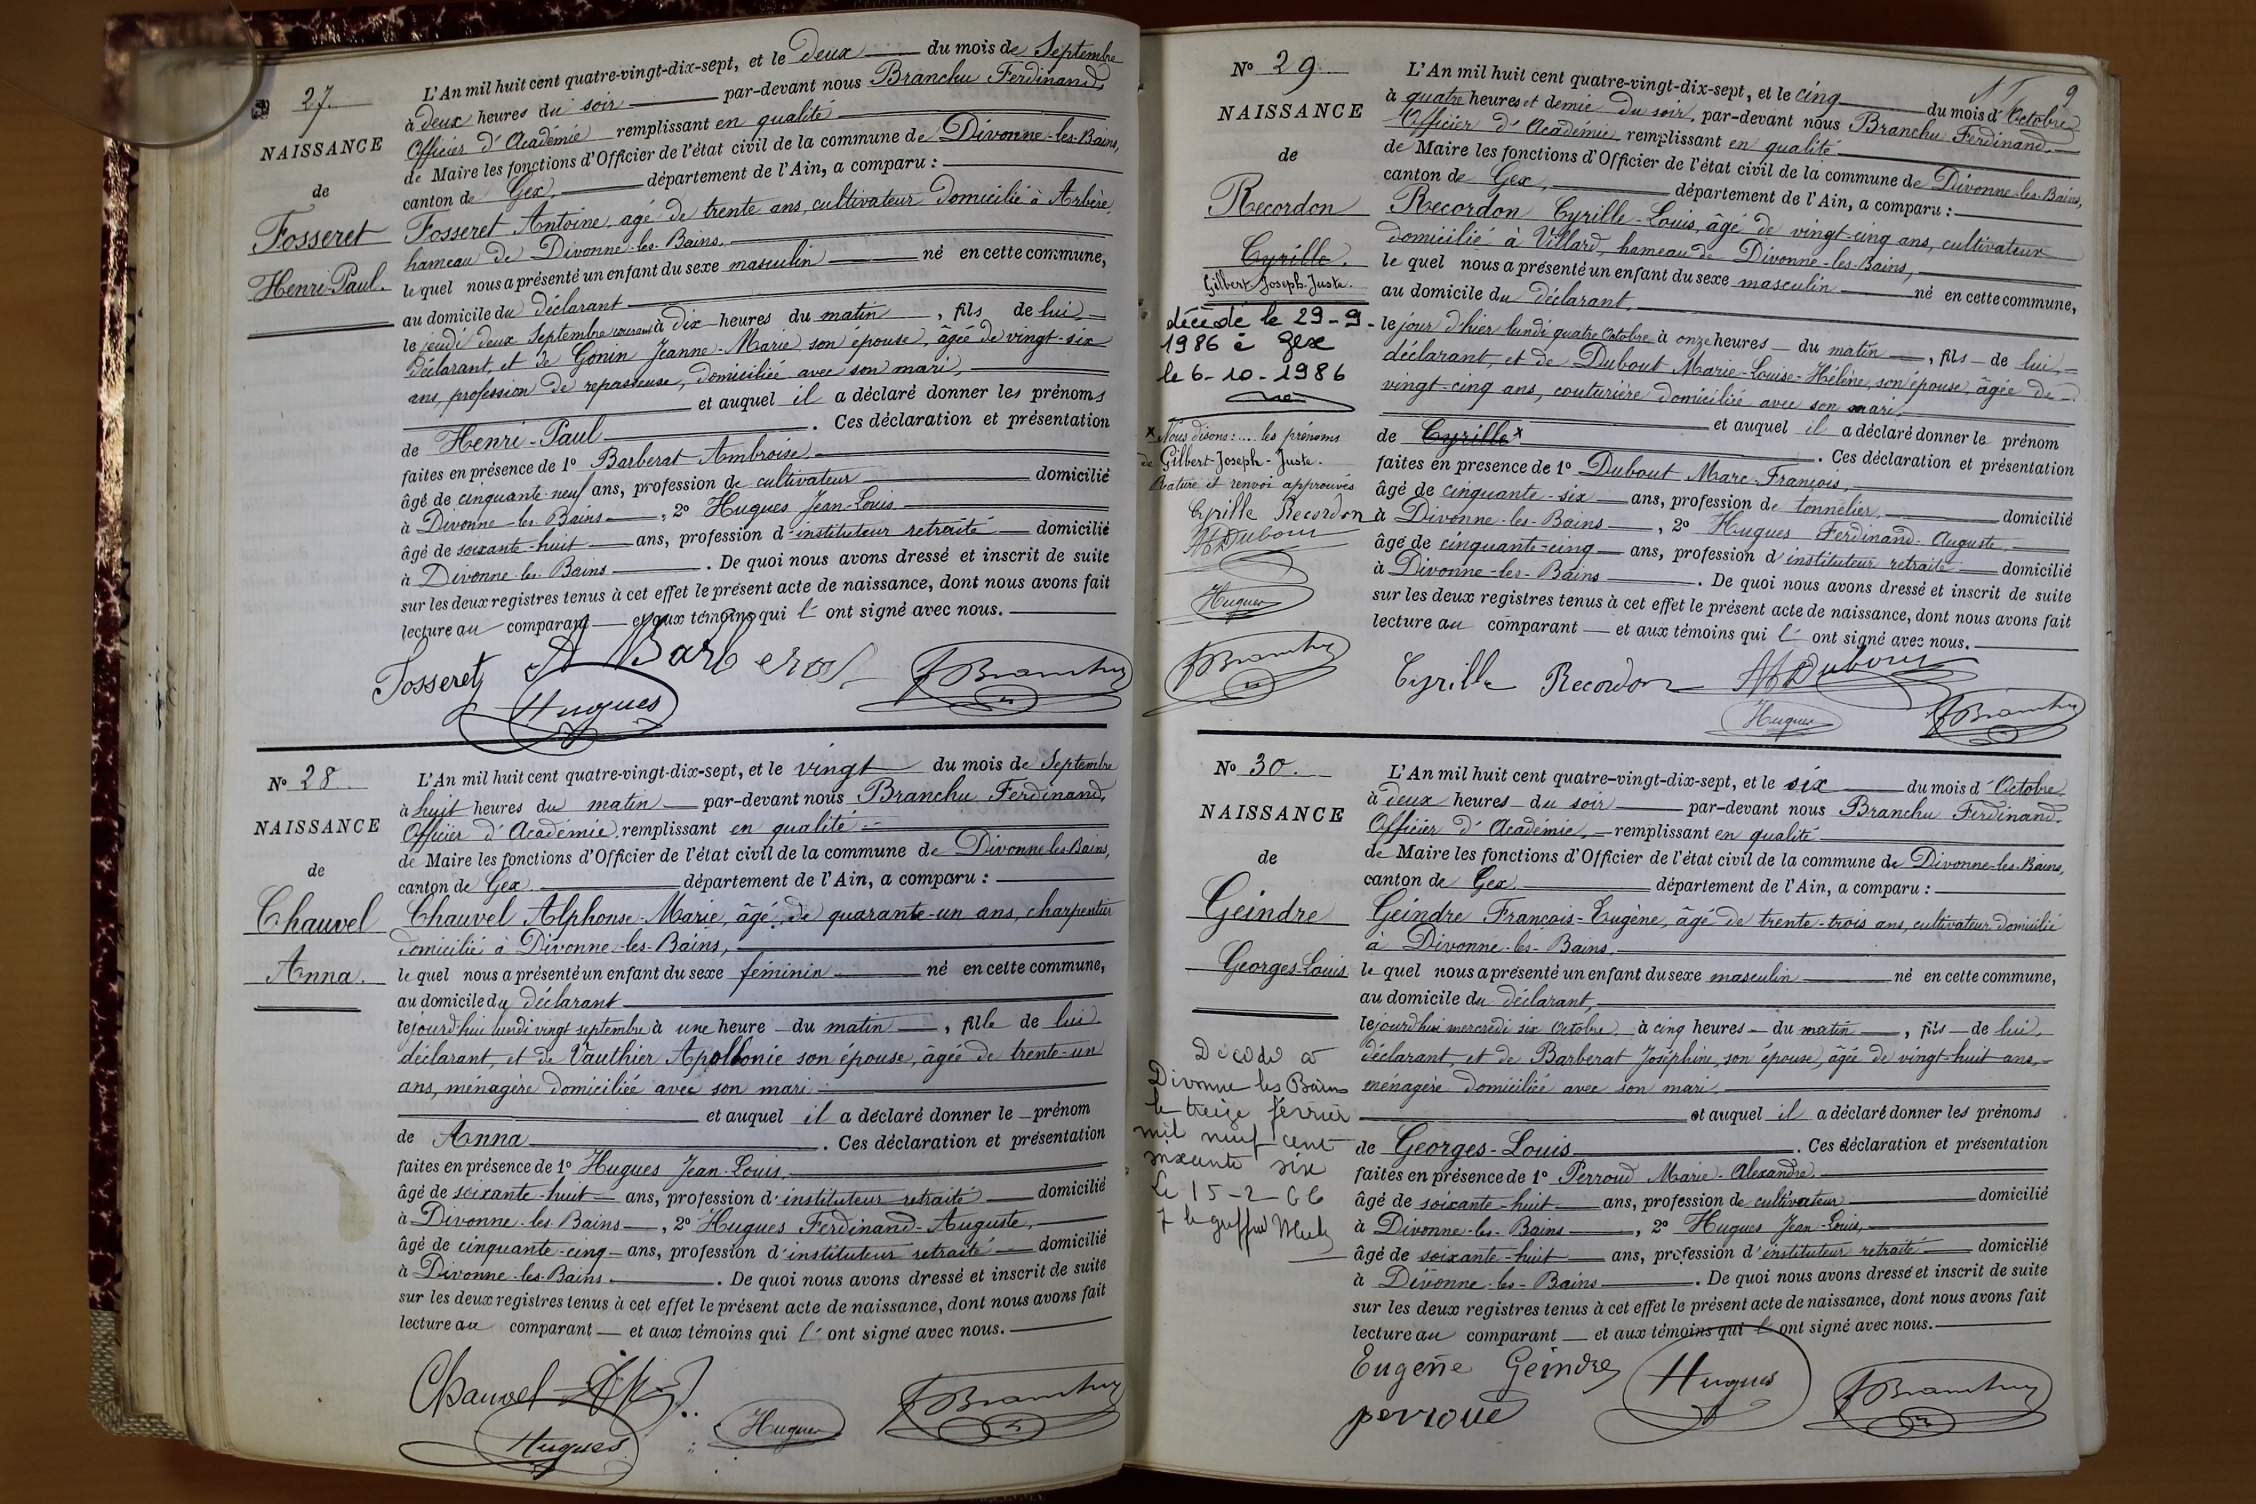 27.
NAISSANCE
de
Fosseret
Henri-Paul.
L'An mil huit cent quatre-vingt-dix-sept, et le Deux du mois de Septembre
à deux heures du soir par-devant nous Branchu Ferdinand,
Officier d'Académie remplissant en qualité
de Maire les fonctions d'Officier de l'état civil de la commune de Divonne-les-Bains,
canton de Gex, département de l'Ain, a comparu :
Fosseret Antoine, agé de trente ans, cultivateur domicilié à Arbère,
hameau de Divonne-les-Bains,
lequel nous a présenté un enfant du sexe masculin né en cette commune,
au domicile du déclarant
le jeudi deux Septembre courant à dix heures du matin, fils de lui
déclarant, et de Gonin Jeanne-Marie son épouse, âgée de vingt-six
ans, profession de repasseuse, domiciliée avec son mari,
et auquel il a déclaré donner les prénoms
de Henri-Paul. Ces déclaration et présentation
faites en présence de 1° Barberat Ambroise
âgé de cinquante-neuf ans, profession de cultivateur domicilié
à Divonne-les-Bains, 2° Hugues Jean-Louis
âgé de soixante-huit ans, profession d'instituteur retraité domicilié
à Divonne-les-Bains. De quoi nous avons dressé et inscrit de suite
sur les deux registres tenus à cet effet le présent acte de naissance, dont nous avons fait
lecture au comparant et aux témoins qui l'ont signé avec nous.
Fosseret A Barberat F Branchu
Hugues
N° 28
NAISSANCE
de
Chauvel
Anna.
L'An mil huit cent quatre-vingt-dix-sept, et le vingt du mois de Septembre
à huit heures du matin par-devant nous Branchu Ferdinand,
Officier d'Académie, remplissant en qualité
de Maire les fonctions d'Officier de l'état civil de la commune de Divonne-les-Bains,
canton de Gex département de l'Ain, a comparu :
Chauvel Alphonse-Marie, âgé de quarante-un ans, charpentier
domicilié à Divonne-les-Bains,
le quel nous a présenté un enfant du sexe féminin né en cette commune,
au domicile du déclarant
lejourd'hui lundi vingt septembre à une heure du matin, fille de lui
déclarant, et de Vauthier Apollonie son épouse, âgée de trente-un
ans, ménagère domiciliée avec son mari
et auquel il a déclaré donner le prénom
de Anna. Ces déclaration et présentation
faites en présence de 1° Hugues Jean-Louis,
âgé de soixante-huit ans, profession d'instituteur retraité domicilié
à Divonne-les-Bains, 2° Hugues Ferdinand-Auguste,
âgé de cinquante-cinq ans, profession d'instituteur retraité domicilié
à Divonne-les-Bains. De quoi nous avons dressé et inscrit de suite
sur les deux registres tenus à cet effet le présent acte de naissance, dont nous avons fait
lecture au comparant et aux témoins qui l'ont signé avec nous.
Chauvel
Hugues Hugues F Branchu
9
N° 29
NAISSANCE
de
Recordon
Cyrille.
Gilbert-Joseph-Juste.
décédé le 29-9-
1986 à Gex
le 6-10-1986
x Nous disons : .... les prénoms
de Gilbert-Joseph-Juste.
Rature et renvoi approuvés
Cyrille Recordon
Dubout
Hugues
F Branchu
L'An mil huit cent quatre-vingt-dix-sept, et le cinq du mois d'Octobre
à quatre heures et demie du soir, par-devant nous Branchu Ferdinand,
Officier d'Académie remplissant en qualité
de Maire les fonctions d'Officier de l'état civil de la commune de Divonne-les-Bains,
canton de Gex, département de l'Ain, a comparu :
Recordon Cyrille-Louis, âgé de vingt-cinq ans, cultivateur
domicilié à Villard, hameau de Divonne-les-Bains,
le quel nous a présenté un enfant du sexe masculin né en cette commune,
au domicile du déclarant,
le jour d'hier lundi quatre Octobre à onze heures du matin, fils de lui,
déclarant, et de Dubout Marie-Louise-Hélène, son épouse, âgée de
vingt-cinq ans, couturière domiciliée avec son mari,
et auquel il a déclaré donner le prénom
de Cyrille x. Ces déclaration et présentation
faites en presence de 1° Dubout Marc-François,
âgé de cinquante-six ans, profession de tonnelier, domicilié
à Divonne-les-Bains, 2° Hugues Ferdinand-Auguste,
âgé de cinquante-cinq ans, profession d'instituteur retraité domicilié
à Divonne-les-Bains. De quoi nous avons dressé et inscrit de suite
sur les deux registres tenus à cet effet le présent acte de naissance, dont nous avons fait
lecture au comparant et aux témoins qui l'ont signé avec nous.
Cyrille Recordon Dubout
Hugues F Branchu
N° 30.
NAISSANCE
de
Geindre
Georges-Louis
Décédé à
Divonne les Bains
le treize février
mil neuf cent
soixante six
Le 15-2-66
L'An mil huit cent quatre-vingt-dix-sept, et le six du mois d'Octobre
à deux heures du soir par-devant nous Branchu Ferdinand,
Officier d'Académie, remplissant en qualité
de Maire les fonctions d'Officier de l'état civil de la commune de Divonne-les-Bains,
canton de Gex département de l'Ain, a comparu :
Geindre François-Eugène, âgé de trente-trois ans, cultivateur domicilié
à Divonne-les-Bains,
le quel nous a présenté un enfant du sexe masculin né en cette commune,
au domicile du déclarant,
lejourd'hui mercredi six Octobre à cinq heures du matin, fils de lui
déclarant, et de Barberat Joséphine, son épouse, âgée de vingt-huit ans,
ménagère domiciliée avec son mari
et auquel il a déclaré donner les prénoms
de Georges-Louis. Ces déclaration et présentation
faites en présence de 1° Perroud Marie-Alexandre,
âgé de soixante-huit ans, profession de cultivateur domicilié
à Divonne-les-Bains, 2° Hugues Jean-Louis,
âgé de soixante-huit ans, profession d'instituteur retraité domicilié
à Divonne-les-Bains. De quoi nous avons dressé et inscrit de suite
sur les deux registres tenus à cet effet le présent acte de naissance, dont nous avons fait
lecture au comparant et aux témoins qui l'ont signé avec nous.
Eugène Geindre Hugues F Branchu
perroud